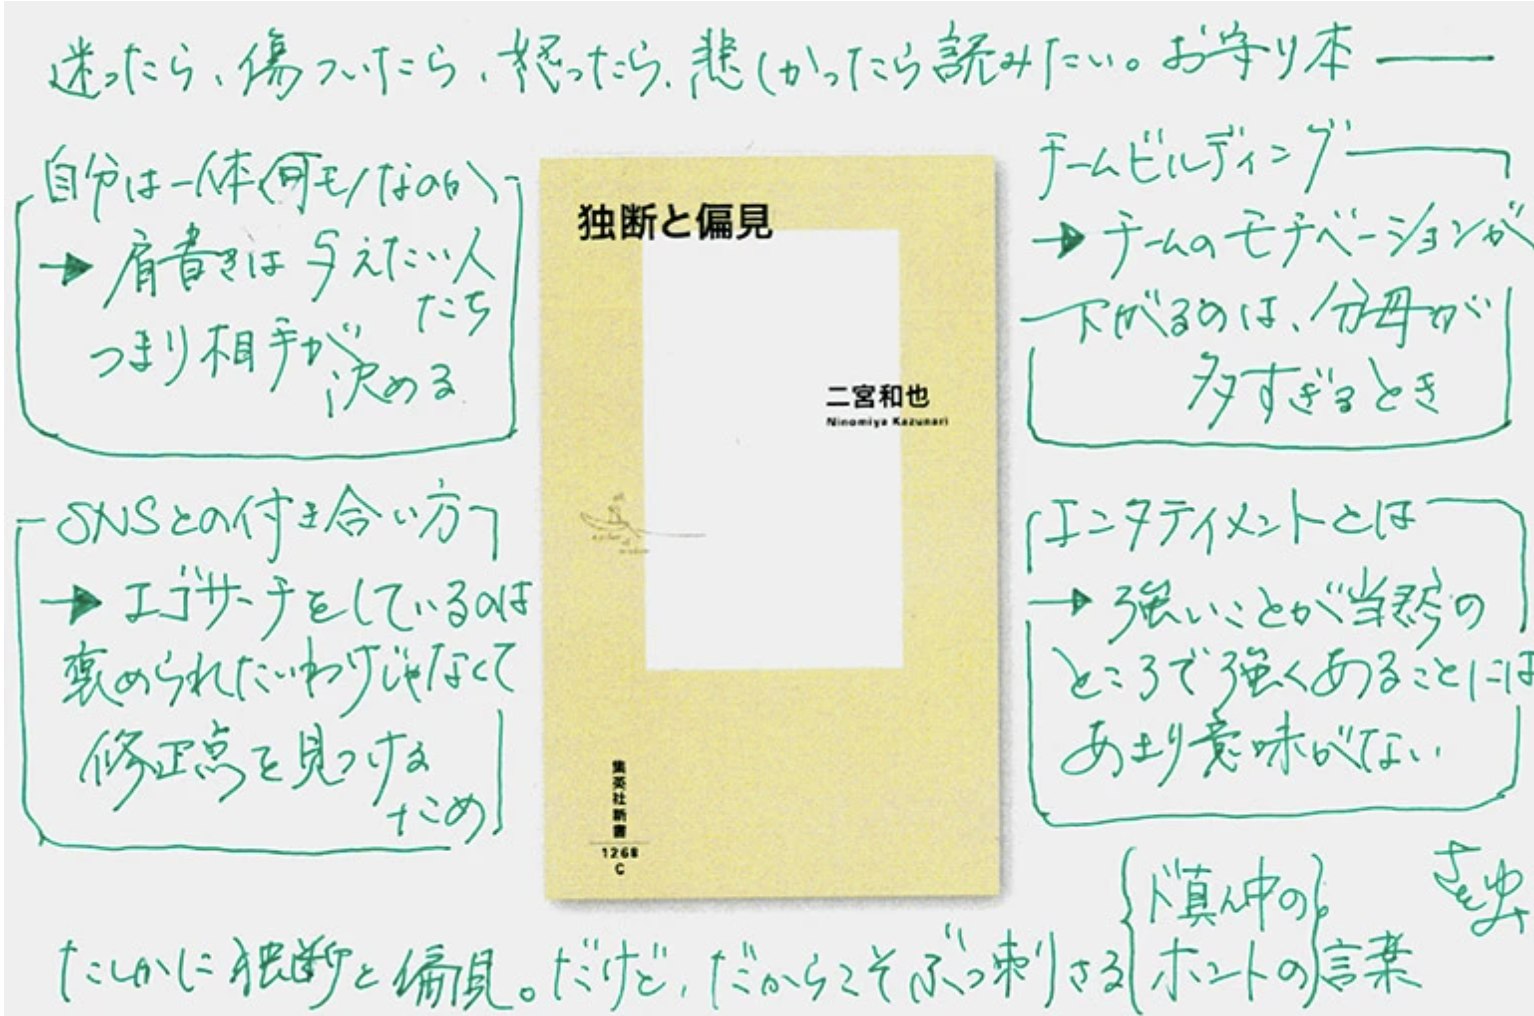 迷ったら、傷ついたら、怒ったら、悲しかったら読みたい。お守り本
自分は一体何モノなのか
→ 肩書きは与えたい人
たち
つまり相手が
決める
SNSとの付き合い方
→ エゴサーチをしているのは
褒められたいわけじゃなくて
修正点を見つける
ため
独断と偏見
二宮和也
Ninomiya Kazunari
集英社新書
1268
C
チームビルディング
→ チームのモチベーションが
下がるのは、分母が
多すぎるとき
エンタテイメントとは
→ 強いことが当然の
ところで強くあることには
あまり意味がない
たしかに独断と偏見。だけど、だからこそぶっ刺さる
ド真ん中の
ホントの
言葉